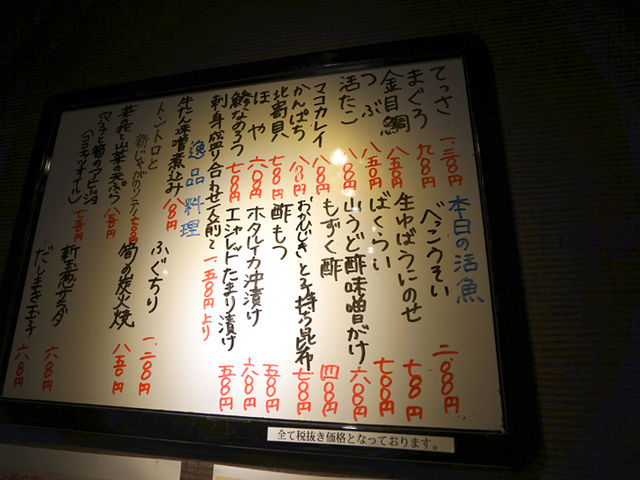 本日の活魚
てっさ 一、二〇〇円
まぐろ 九八〇円
金目鯛 八五〇円
つぶ 八五〇円
活たこ 八〇円
マコカレイ 八〇円
かんぱち
北寄貝 七八〇円
ほや 六八〇円
鯵なめろう 七〇〇円
刺身盛り合わせ一人前 一、五〇〇円より
べっこうそい 二、〇〇円
生ゆばうにのせ 七八〇円
ばくらい 七〇〇円
山うど酢味噌がけ 六〇〇円
もずく酢 四〇〇円
子持ち昆布 七〇〇円
酢もつ 五〇〇円
ホタルイカ沖漬け 六八〇円
エシャレットたまり漬け 五〇〇円
逸品料理
牛たん味噌煮込み
トントロと
新じゃがのソテー 七〇〇円
菜の花と山菜の天ぷら 八五〇円
筍のアヒージョ
(ココナッツオイル)
ふぐちり 一、二〇〇円
筍の炭火焼 八五〇円
新玉葱サラダ 六八〇円
だしまき玉子 六八〇円
全て税抜き価格となっております。